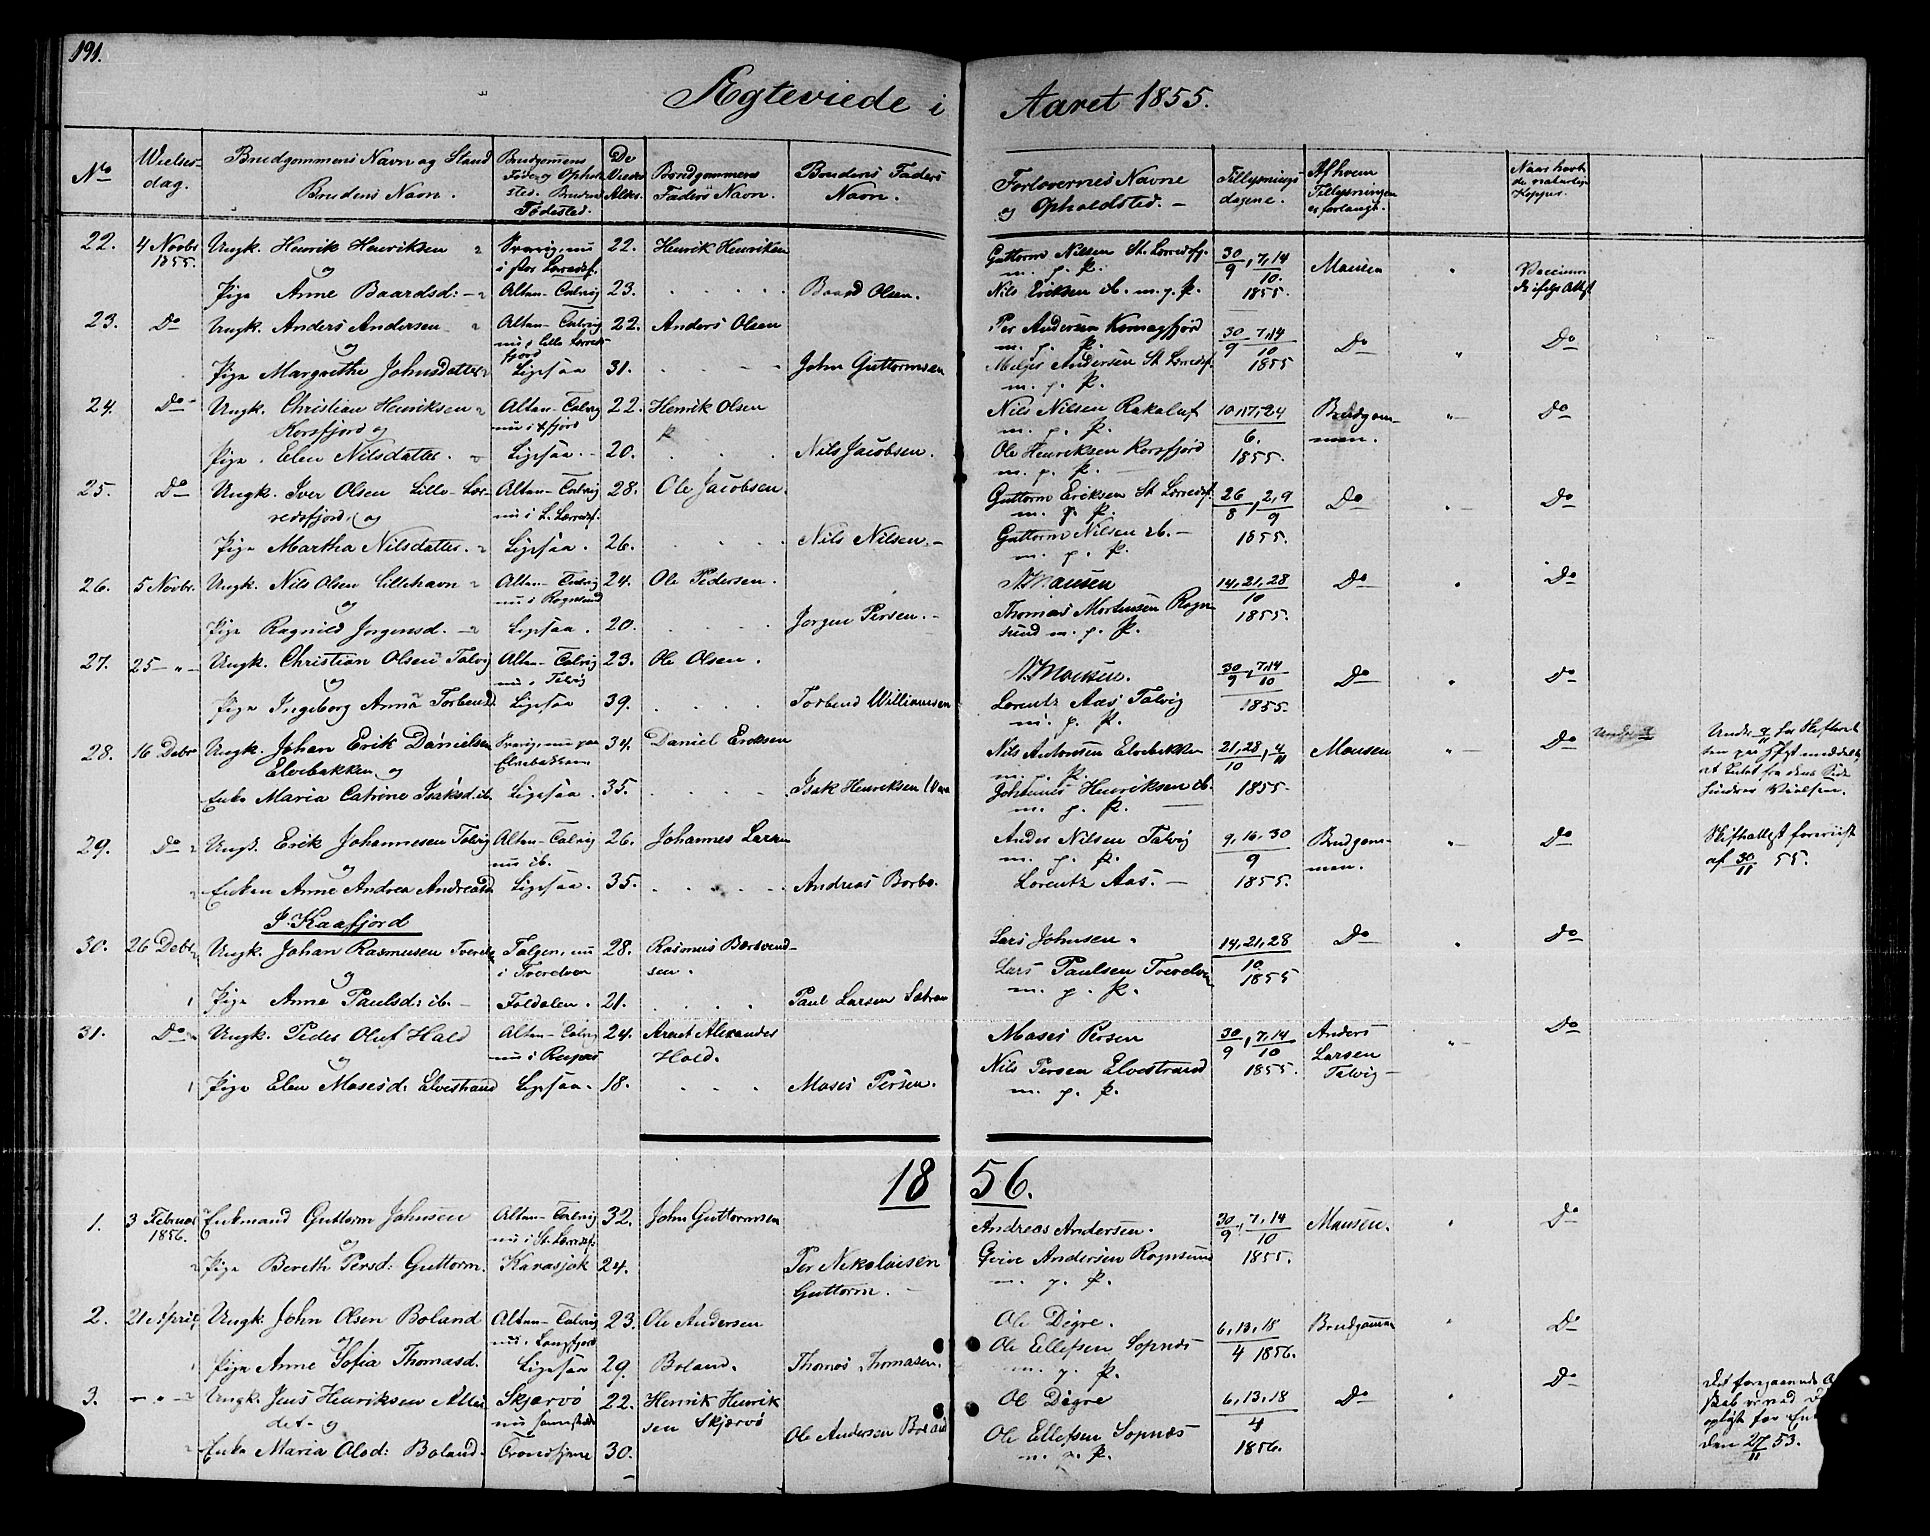 191.
Ægteviede i Aaret 1855.
No
Vielses-
dag.
Brudgommens Navn og Stand
Brudens Navn.
Brudgommens
Føde og Opholds
sted. Brudens
Fødested.
De
Viedes
Alder.
Brudgommens
Faders Navn.
Brudens Faders
Navn.
Forlovernes Navne
og Opholdsted. —
Tillysnings
dagene.
Af hvem
Tillysningen
er forlangt.
Naar havt
de naturlige
Kopper.
22. 4 Novbr. Ungk. Henrik Henriksen 22. Henrik Henriksen Guttorm Nilsen St. Lerredsfj. 30/9, 7, 14/10 Mausen "
1855. og m. p. P.
Pige Anne Baardsd: Alten-Talvig 23. Baard Olsen. Nils Eriksen ib. m. p. P. 1855.
23. Do Ungk. Anders Andersen Alten-Talvig 22. Anders Olsen Per Andersen Komagfjord 30/9 7,14/10 Do " Do
og nu i Lille Lerreds-
fjord m. p. P.
Pige Margrethe Johnsdatter Ligesaa 31. John Guttormsen Andersen St. Lerredsf. 1855
m. p. P.
24. Do Ungk. Christian Henriksen Alten-Talvig 22. Henrik Olsen Nils Nilsen Rakaluft 10,17,24 Brudgom- " Do
Korsfjord og m. p. P. 6. men.
Pige. Elen Nilsdatter. Ligesaa. 20. Nils Jacobsen. Ole Henriksen Korsfjord 1855.
m. p. P.
25. Do Ungk. Iver Olsen Lille-Ler- Alten-Talvig 28. Ole Jacobsen. Guttorm Eriksen St. Lerredsf. 26/8, 2, 9/9 Do " Do
redsfjord, og nu i L. Lerredsf. m. p. P.
Pige Martha Nilsdatter. Ligesaa. 26. Nils Nilsen. Guttorm Nilsen ib. 1855.
m. p. P.
26. 5 Novbr. Ungk. Nils Olsen Lillehavn Alten-Talvig 24. Ole Pedersen. Mausen 14, 21, 28/10 Do " Do
og nu i Rognsund
Pige Ragnild Jorgensd. Ligesaa. 20. Jorgen Persen. Thomas Mortensen Rogn 1855.
sund m. p. P.
27. 25 " Ungk. Christian Olsen Talvig Alten-Talvig 23. Ole Olsen. Mausen. 30/9, 7,14/10 Do " Do
og nu i Talvig
Pige Ingeborg Anna Torbensd Ligesaa 39. Torbend Williamsen Lorentz Aas Talvig 1855.
m. p. P.
28. 16 Debr Ungk. Johan Erik Danielsen 34. Daniel Eriksen Nils Antonsen Elvebakken 21, 28, 4/11 Mausen " Do
Elvebakken og Elvebakken m. p. P. 10
Enke Maria Catrine Isaksd. ib. Ligesaa. 35. Isak Henriksen Johannes Henriksen ib. 1855.
m. p. P.
29. Do Ungk. Erik Johannesen Talvig Alten-Talvig 26. Johannes Larsen Anders Nilsen Talvig 9, 16, 30/9 Brudgom- " Do Skifteattest foreviist
og nu ib. m. p. P. men. af 30/11 55.
Enken Anne Andrea Andreasd Ligesaa. 35. Andreas Borbo. Lorentz Aas. 1855.
I Kaafjord
30. 26 Debr Ungk. Johan Rasmusen Tverelv Tolgen, nu 28. Rasmus Lars Johnsen 14, 21, 28/10 Do " Do
og i Tverelven sen.
Pige Anne Paulsd. ib. Foldalen. 21. Paul Larsen Lars Paulsen Tverelven 1855
m. p. P.
31. Do Ungk. Peder Oluf Hald Alten-Talvig 24. Arent Alexander Moses Persen 30/9, 7, 14/10 Anders " Do
og Hald. Larsen
Pige Elen Mosesd: Elvestrand Ligesaa. 18. Moses Persen. Nils Persen Elvestrand 1855. Talvig
m. p. P.
1856.
1. 3 Februar Enkemand Guttorm Johnsen Alten-Talvig 32. John Guttormsen Andreas Andersen. 30/9, 7, 14/10 Mausen. " Do
1856. og nu i St. Lerredsf.
Pige Bereth Persd: Guttorm. Karasjok 24. Per Nikolaisen Andersen Rognsund 1855.
Guttorm. m. p. P.
2. 21 April Ungk. John Olsen Boland Alten-Talvig 23. Ole Andersen Ole Digre. 6, 13, 18 Brudgommen " Do
og nu i Langfjord Boland.
Pige Anne Sofia Thomasd. Ligesaa 29. Thomas Thomasen. Ole Ellefsen Sopnæs 4 1856.
m. p. P.
3. " Ungk. Jens Henriksen Skjærvø 22. Henrik Henrik Ole Digre 6, 13, 18/4 Do " Do
og sen Skjærvø
Enke Maria Olsd: Boland. Trondhjem 30. Ole Andersen Boland Ole Ellefsen Sopnæs 1856.
m. p. P. den 27/11 53.